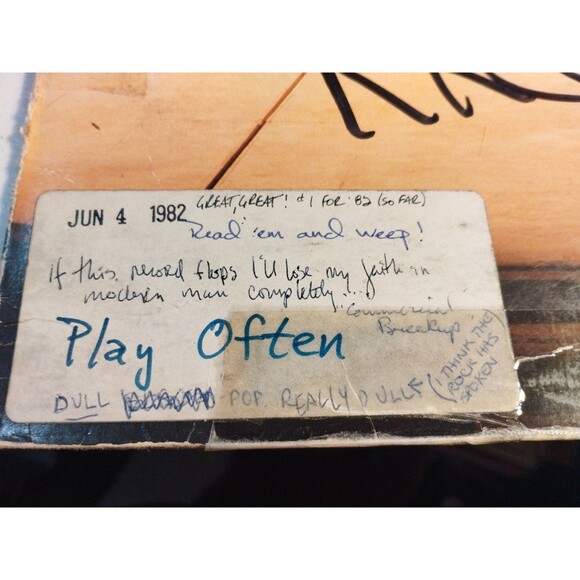 JUN 4 1982 GREAT, GREAT! #1 FOR '82 (SO FAR)
Read 'em and weep!
If this record flops I'll lose my faith in
modern man completely...
"Commercial
Breakup"
Play Often
DULL POP. REALLY DULL
(I THINK THE
ROCK HAS
SPOKEN